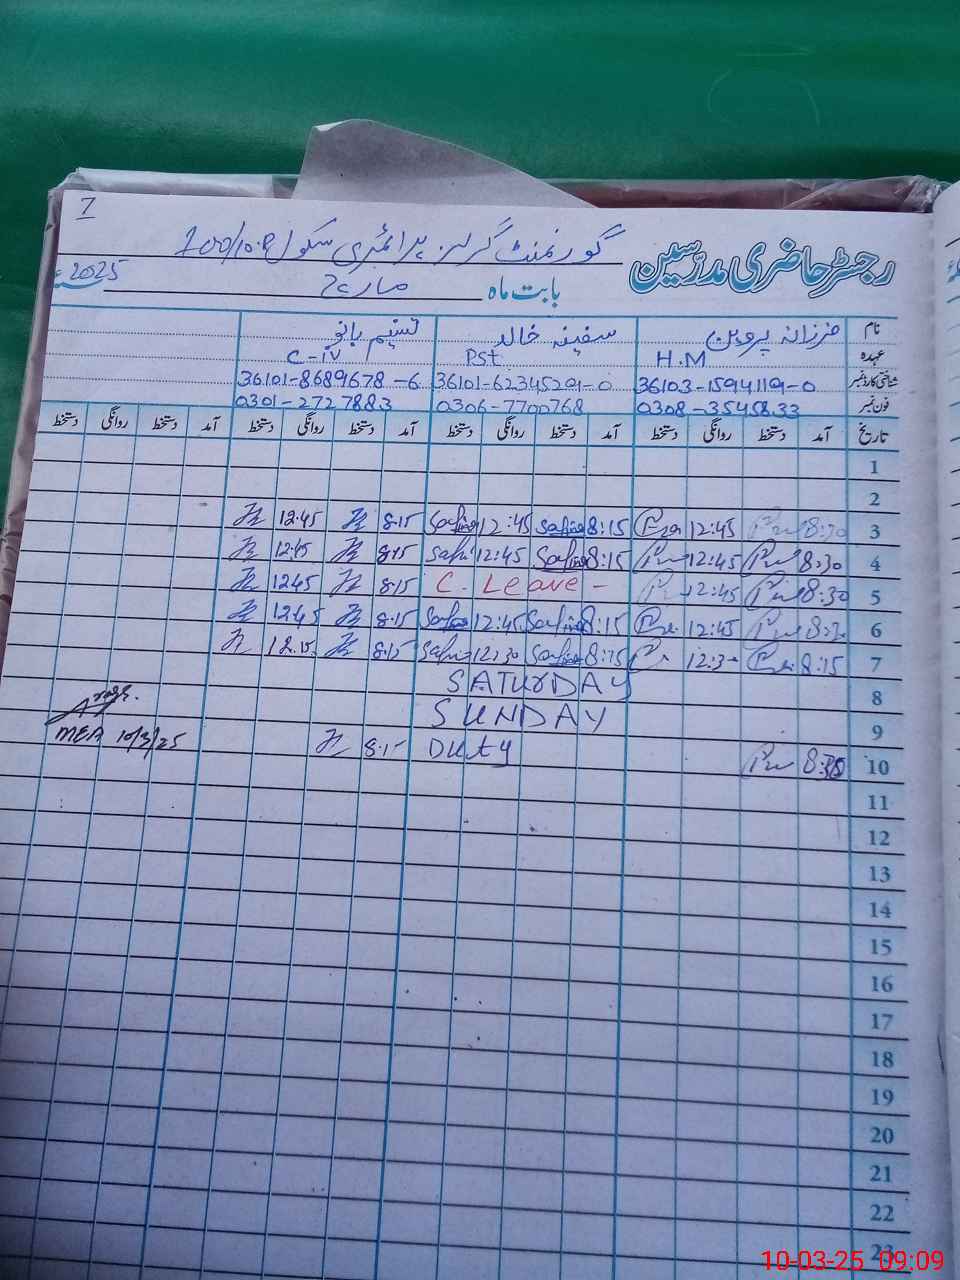 7
گورنمنٹ گرلز پرائمری سکول 100/10.R
رجسٹر حاضری مدرسین
بابت ماہ مارچ 2025ء
نام فرزانہ پروین سفینہ خالد تسنیم بانو
عہدہ H.M Pst C-iv
شناختی کارڈ نمبر 36103-1594119-0 36101-6234529-0 36101-8689678-6
فون نمبر 0308-3545833 0306-7700768 0301-2727883
تاریخ آمد دستخط روانگی دستخط آمد دستخط روانگی دستخط آمد دستخط روانگی دستخط آمد دستخط روانگی دستخط
1
2
3 8:30 12:45 8:15 Safina 12:45 Safina 8:15 12:45
4 8:30 12:45 8:15 Safina 12:45 8:15 12:45
5 8:30 12:45 C. Leave - 8:15 12:45
6 8:30 12:45 8:15 Safina 12:45 Safina 8:15 12:45
7 8:15 12:30 8:15 Safina 12:30 8:15 12:15
8 SATURDAY
9 SUNDAY
10 8:30 DUTY 8:15
MEA 10/3/25
11
12
13
14
15
16
17
18
19
20
21
22
23
10-03-25 09:09